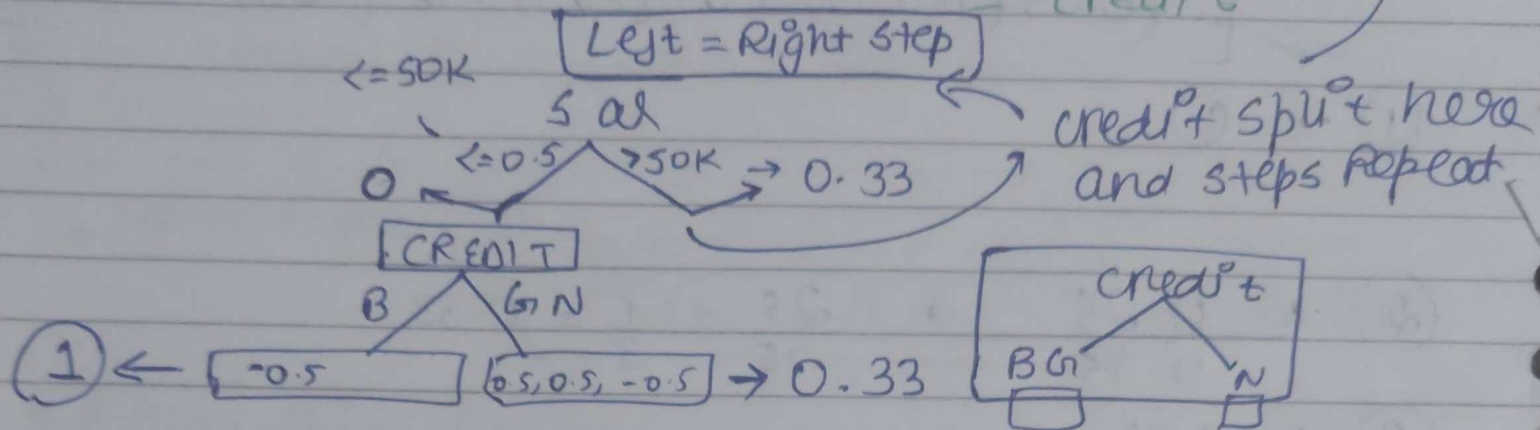 Left = Right step
<=50K
Sal
<=0.5 >50K → 0.33
0
credit split here
and steps Repeat
CREDIT
B GN
1 ← -0.5 0.5, 0.5, -0.5 → 0.33
credit
BG N